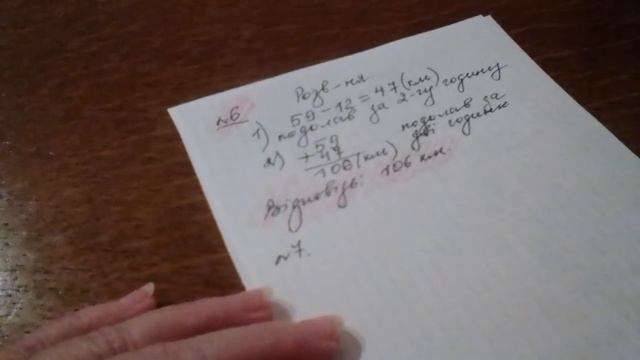 Розв-ня
№6
1) 59-12=47(км)
подолав за 2-гу годину
2) +59
47
106(км) подолав за
дві години
Відповідь: 106 км.
№7.